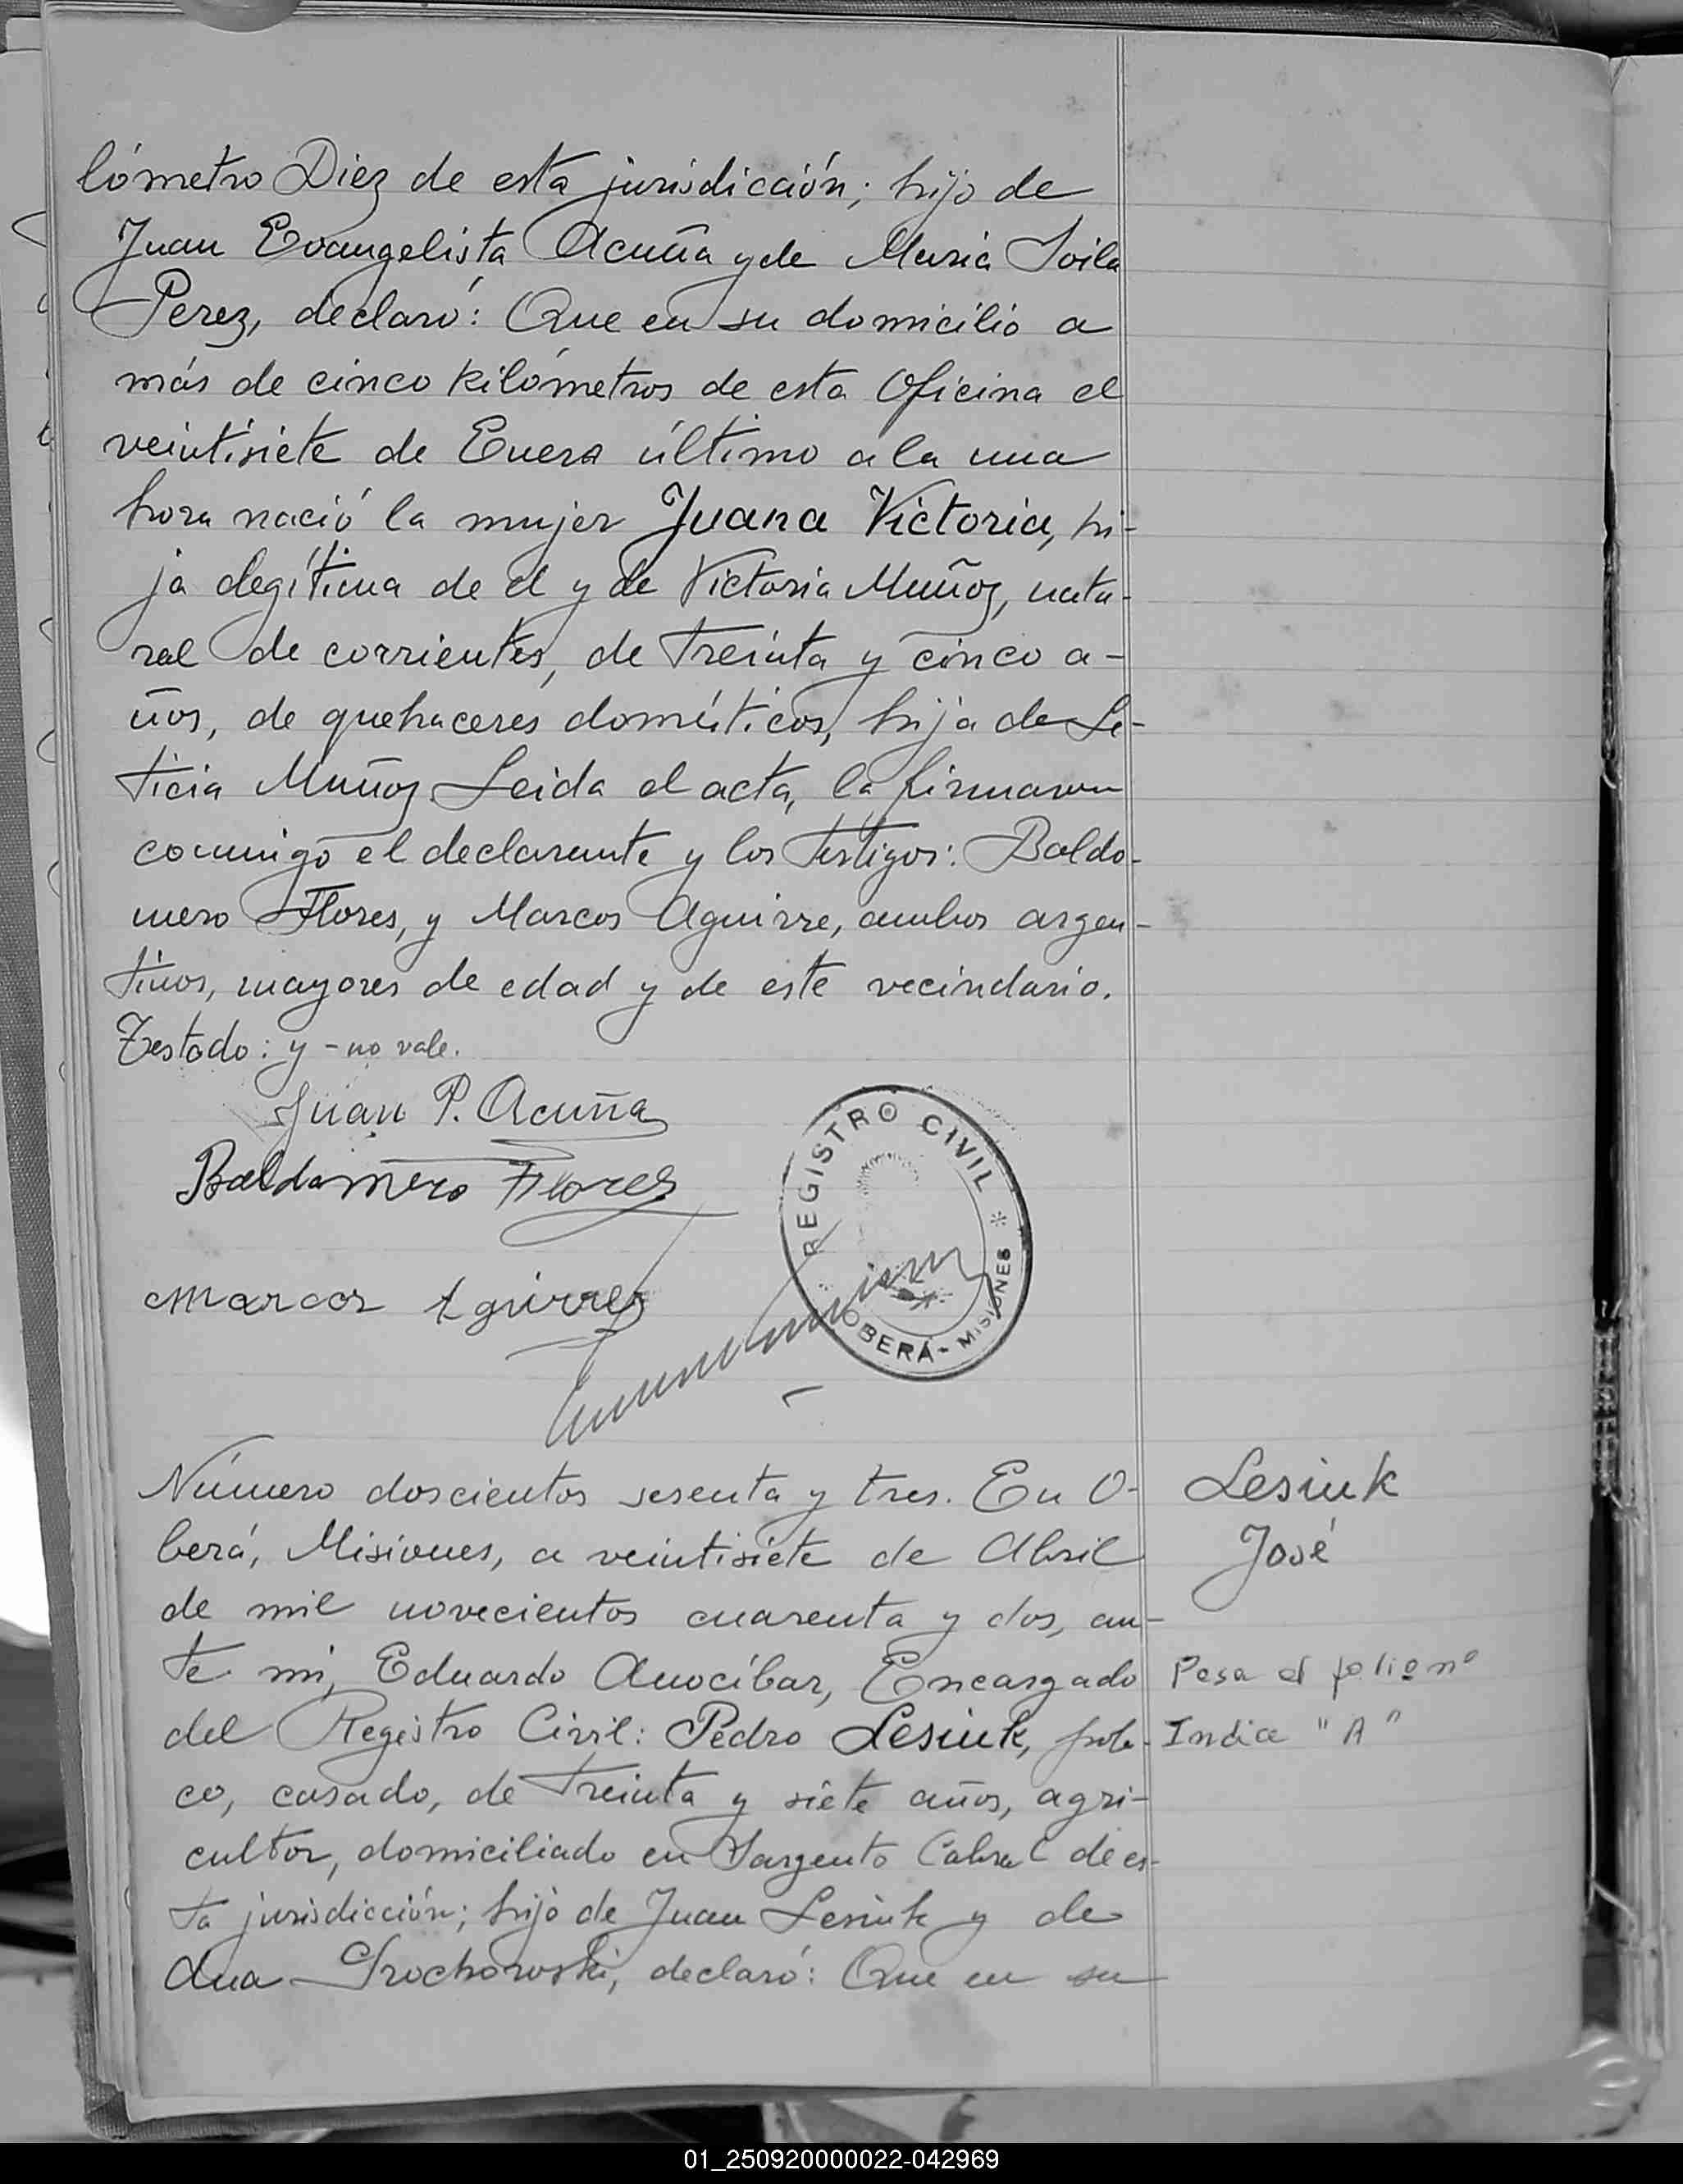 lómetro Diez de esta jurisdicción; hijo de
Juan Evangelista Acuña y de Maria Soila
Perez, declaró: Que en su domicilio a
más de cinco kilómetros de esta Oficina el
veintisiete de Enero último a la una
hora nació la mujer Juana Victoria, hi-
ja ilegítima de el y de Victoria Muñoz, natu-
ral de corrientes, de treinta y cinco a-
ños, de quehaceres domésticos, hija de Le-
ticia Muñoz. Leida el acta, la firmaron
conmigo el declarante y los testigos: Baldo-
mero Flores, y Marcos Aguirre, ambos argen-
tinos, mayores de edad y de este vecindario.
Testado: y - no vale.
Juan P. Acuña
Baldomero Flores
Marcos Aguirre
REGISTRO CIVIL * OBERÁ - MISIONES
Número doscientos sesenta y tres. En O-
berá, Misiones, a veintisiete de Abril
de mil novecientos cuarenta y dos, an-
te mi, Eduardo Anocíbar, Encargado
del Registro Civil: Pedro Lesiuk, pola-
co, casado, de treinta y siete años, agri-
cultor, domiciliado en Sargento Cabral de es-
ta jurisdicción; hijo de Juan Lesiuk y de
Ana Grochowski, declaró: Que en su
Lesiuk
José
Pasa al folio nº
Indice "A"
01_250920000022-042969